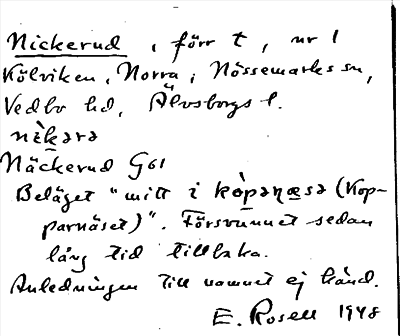 Nickerud, förr t, nr 1
Kölviken, Norra, Nössemarks sn,
Vedbo hd, Älvsborgs l.
nèkərə
Näckerud G61
Beläget "mitt i kòpənæsə (Kop-
parnäset)". Försvunnet sedan
lång tid tillbaka.
Anledningen till namnet ej känd.
E. Rosell 1948